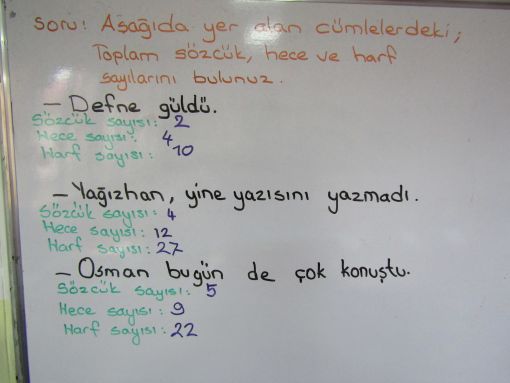 Soru: Aşağıda yer alan cümlelerdeki;
Toplam sözcük, hece ve harf
sayılarını bulunuz.
— Defne güldü.
Sözcük sayısı: 2
Hece sayısı: 4
Harf sayısı: 10
— Yağızhan, yine yazısını yazmadı.
Sözcük sayısı: 4
Hece sayısı: 12
Harf sayısı: 27
— Osman bugün de çok konuştu.
Sözcük sayısı: 5
Hece sayısı: 9
Harf sayısı: 22